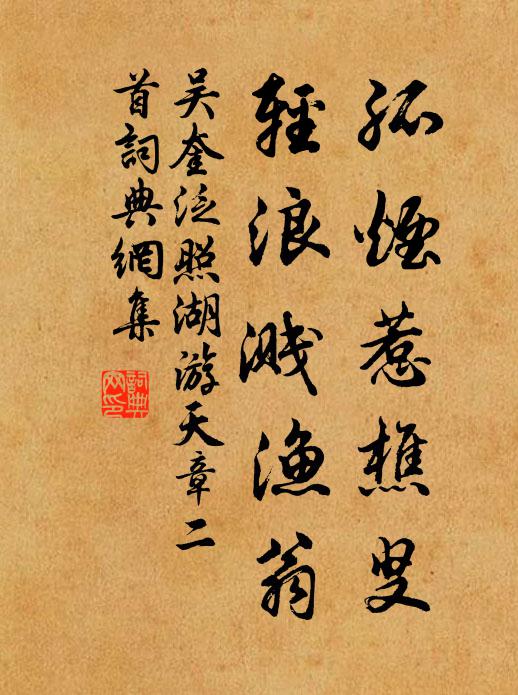 孤煙惹樵叟
輕浪濺漁翁
吳奎泛照湖游天章二
首詞典網集
詞典
网印